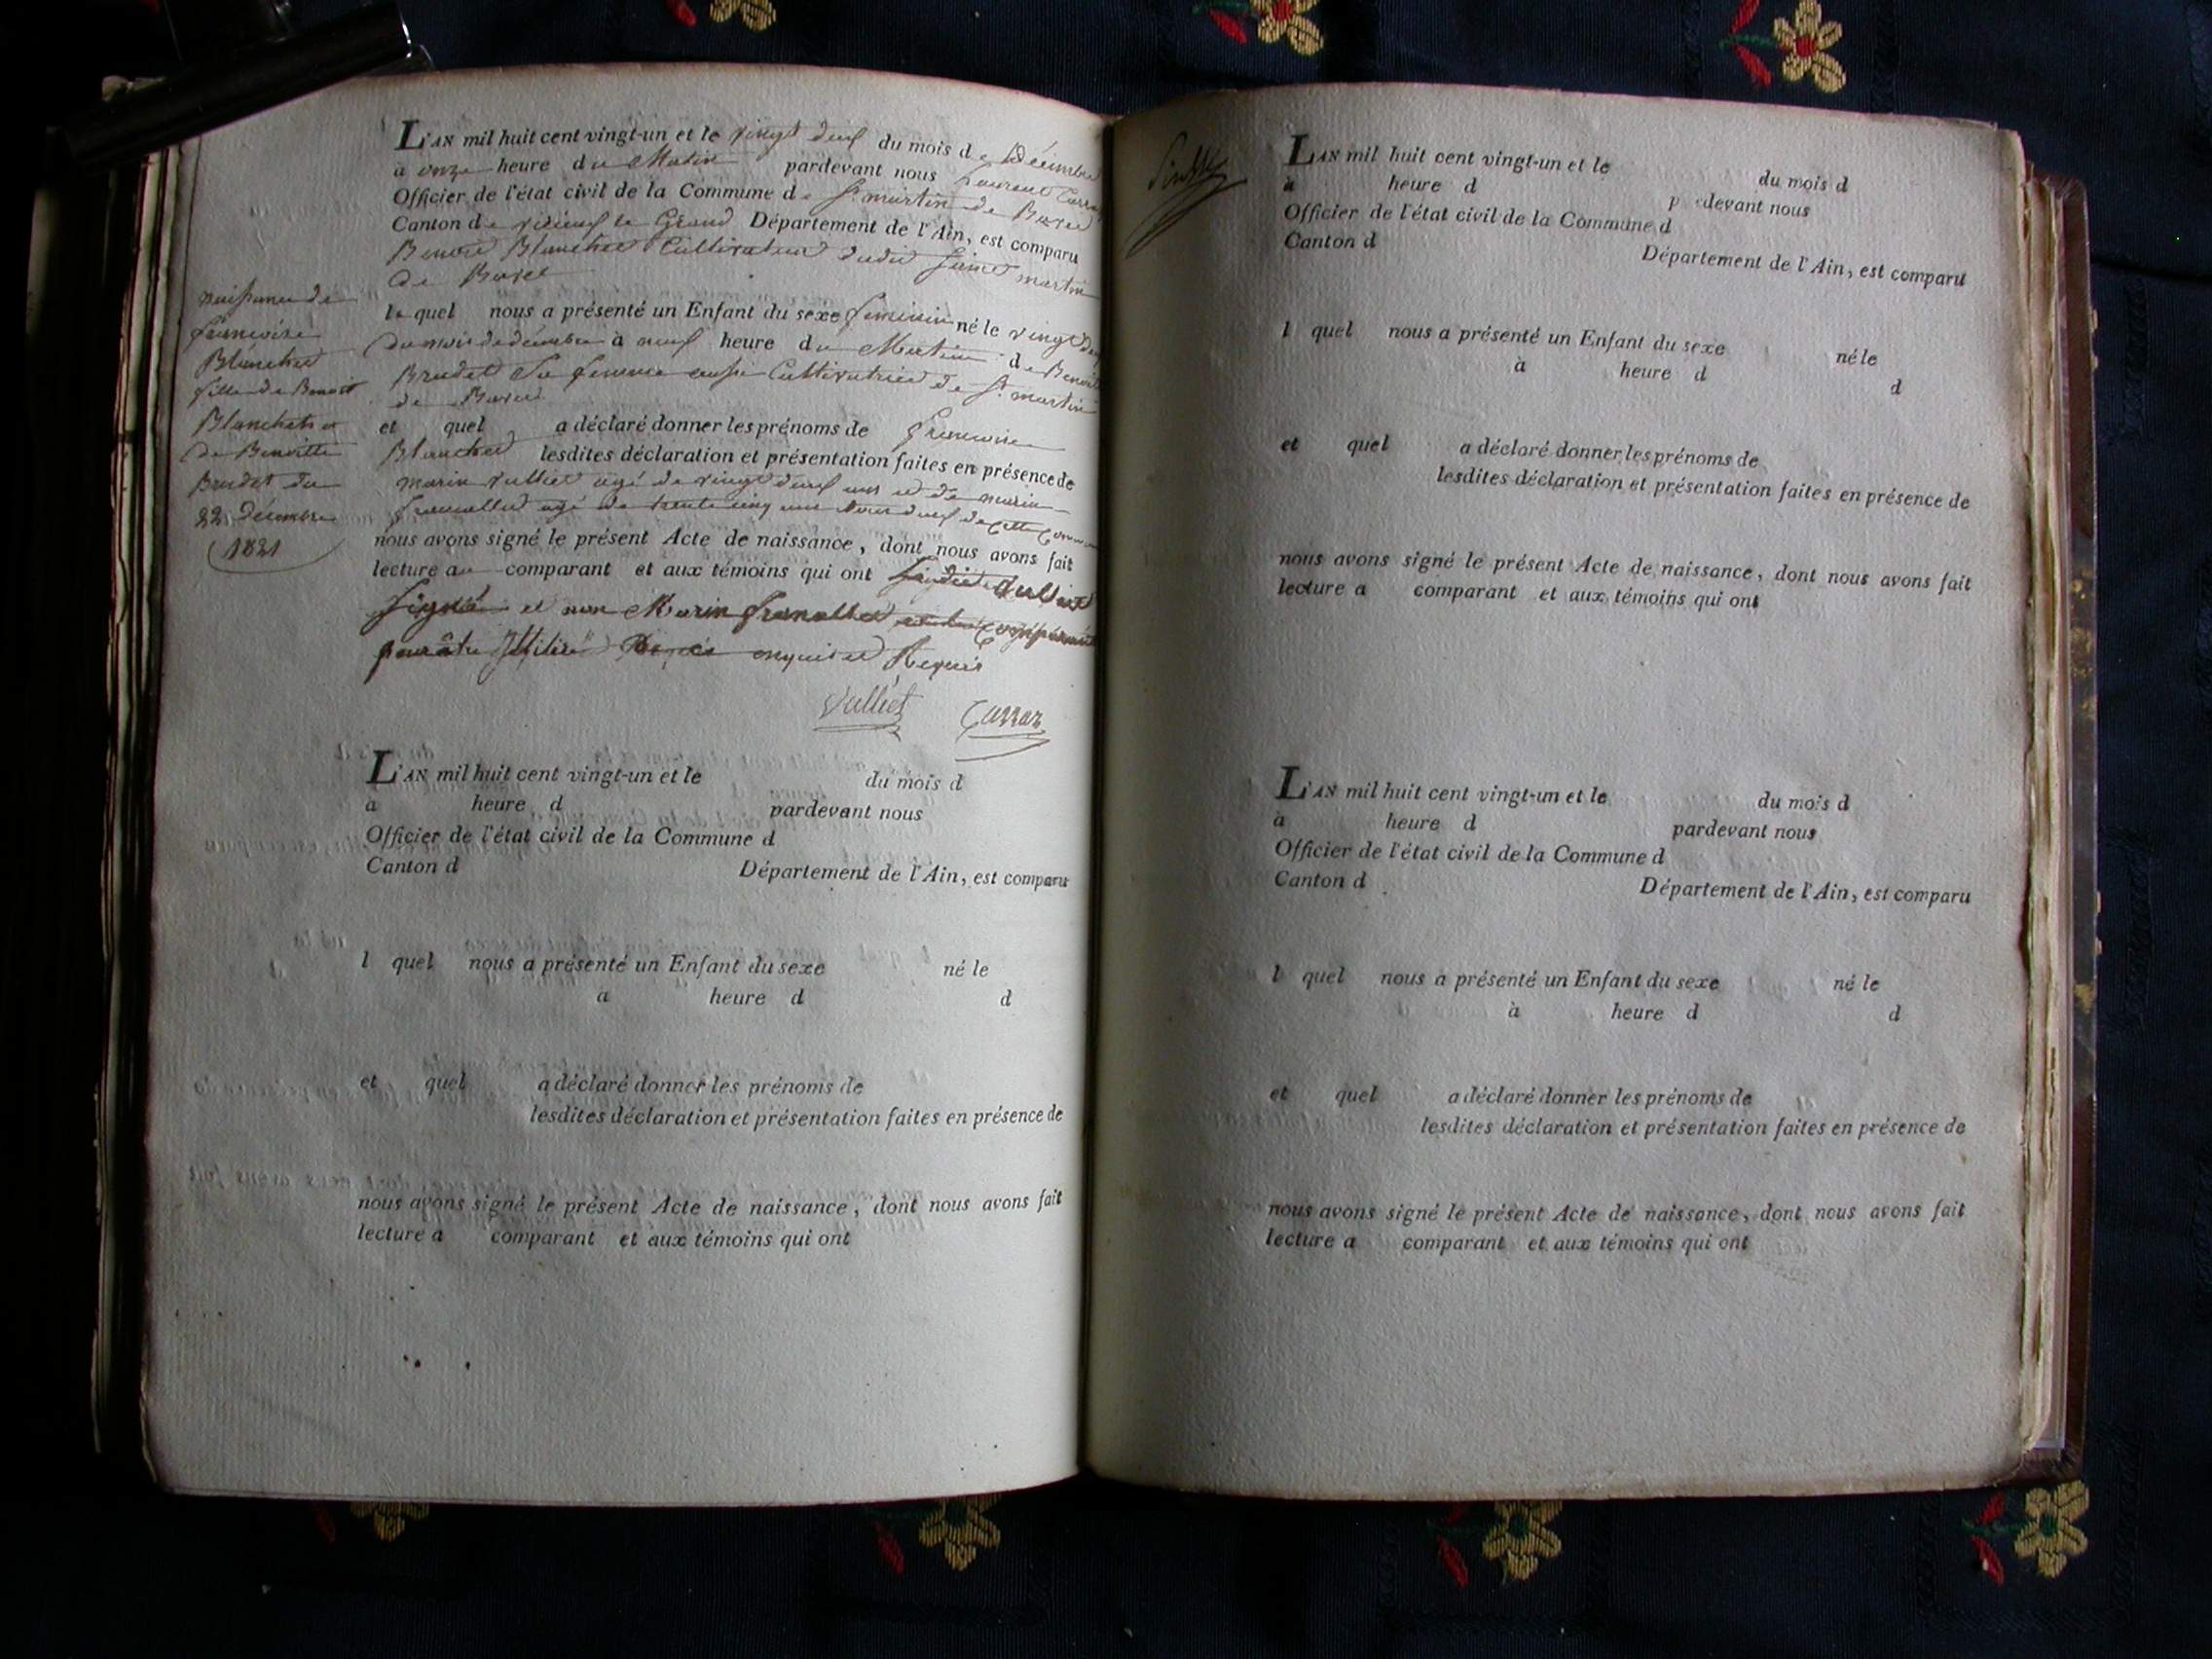 L'AN mil huit cent vingt-un et le vingt deux du mois de Décembre
à onze heure du Matin pardevant nous Laurent Carraz
Officier de l'état civil de la Commune de St martin de Bavel
Canton de vieux le Grand Département de l'Ain, est comparu
Benoit Blanchet Cultivateur dudit Saint martin
de Bavel
naissance de
françoise
Blanchet
fille de Benoit
Blanchet et
de Benoitte
Brudet du
22 décembre
1821
le quel nous a présenté un Enfant du sexe feminin né le vingt deux
du mois de décembre à neuf heure du Matin de Benoitte
Brudet Sa femme aussi Cultivatrice de St martin
de Bavel
et quel a déclaré donner les prénoms de françoise
Blanchet lesdites déclaration et présentation faites en présence de
marin vulliet agé de vingt deux ans et de marin
agé de trente cinq ans tous deux de cette
nous avons signé le présent Acte de naissance, dont nous avons fait
lecture au comparant et aux témoins qui ont Vulliet
Signé et non Marin comparant
pour être enquis et Requis
Vulliet Carraz
L'AN mil huit cent vingt-un et le du mois d
à heure d pardevant nous
Officier de l'état civil de la Commune d
Canton d Département de l'Ain, est comparu
l quel nous a présenté un Enfant du sexe né le
à heure d d
et quel a déclaré donner les prénoms de
lesdites déclaration et présentation faites en présence de
nous avons signé le présent Acte de naissance, dont nous avons fait
lecture a comparant et aux témoins qui ont
L'AN mil huit cent vingt-un et le du mois d
à heure d pardevant nous
Officier de l'état civil de la Commune d
Canton d Département de l'Ain, est comparu
l quel nous a présenté un Enfant du sexe né le
à heure d d
et quel a déclaré donner les prénoms de
lesdites déclaration et présentation faites en présence de
nous avons signé le présent Acte de naissance, dont nous avons fait
lecture a comparant et aux témoins qui ont
L'AN mil huit cent vingt-un et le du mois d
à heure d pardevant nous
Officier de l'état civil de la Commune d
Canton d Département de l'Ain, est comparu
l quel nous a présenté un Enfant du sexe né le
à heure d d
et quel a déclaré donner les prénoms de
lesdites déclaration et présentation faites en présence de
nous avons signé le présent Acte de naissance, dont nous avons fait
lecture a comparant et aux témoins qui ont